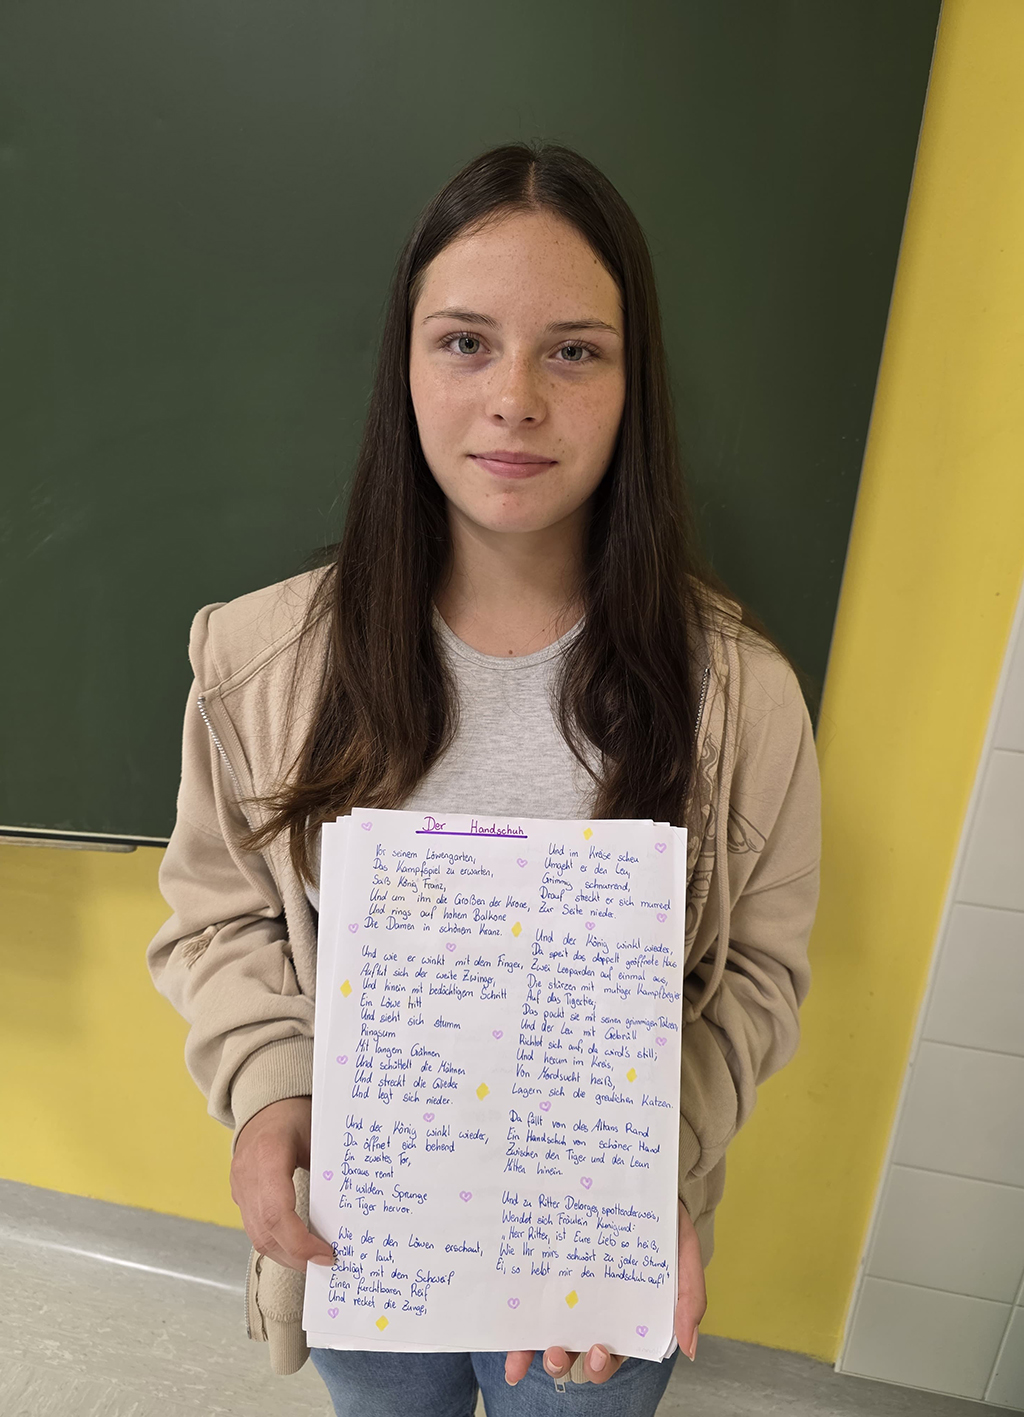 Der Handschuh
Vor seinem Löwengarten,
Das Kampfspiel zu erwarten,
Saß König Franz,
Und um ihn die Großen der Krone,
Und rings auf hohem Balkone
Die Damen in schönem Kranz.
Und wie er winkt mit dem Finger,
Auftut sich der weite Zwinger,
Und hinein mit bedächtigem Schritt
Ein Löwe tritt
Und sieht sich stumm
Ringsum
Mit langem Gähnen
Und schüttelt die Mähnen
Und streckt die Glieder
Und legt sich nieder.
Und der König winkt wieder,
Da öffnet sich behend
Ein zweites Tor,
Daraus rennt
Mit wildem Sprunge
Ein Tiger hervor.
Wie der den Löwen erschaut,
Brüllt er laut,
Schlägt mit dem Schweif
Einen furchtbaren Reif
Und recket die Zunge,
Und im Kreise scheu
Umgeht er den Leu,
Grimmig schnurrend,
Drauf streckt er sich murred
Zur Seite nieder.
Und der König winkt wieder,
Da speit das doppelt geöffnete Haus
Zwei Leoparden auf einmal aus,
Die stürzen mit mutiger Kampfbegier
Auf das Tigertier,
Das packt sie mit seinen grimmigen Tatzen,
Und der Leu mit Gebrüll
Richtet sich auf, da wird's still;
Und herum im Kreis,
Von Mordsucht heiß,
Lagern sich die greulichen Katzen.
Da fällt von des Altans Rand
Ein Handschuh von schöner Hand
Zwischen den Tiger und den Leun
Mitten hinein.
Und zu Ritter Delorges, spottenderweis,
Wendet sich Fräulein Kunigund:
„Herr Ritter, ist Eure Lieb so heiß,
Wie Ihr mirs schwört zu jeder Stund,
Ei, so hebt mir den Handschuh auf!"